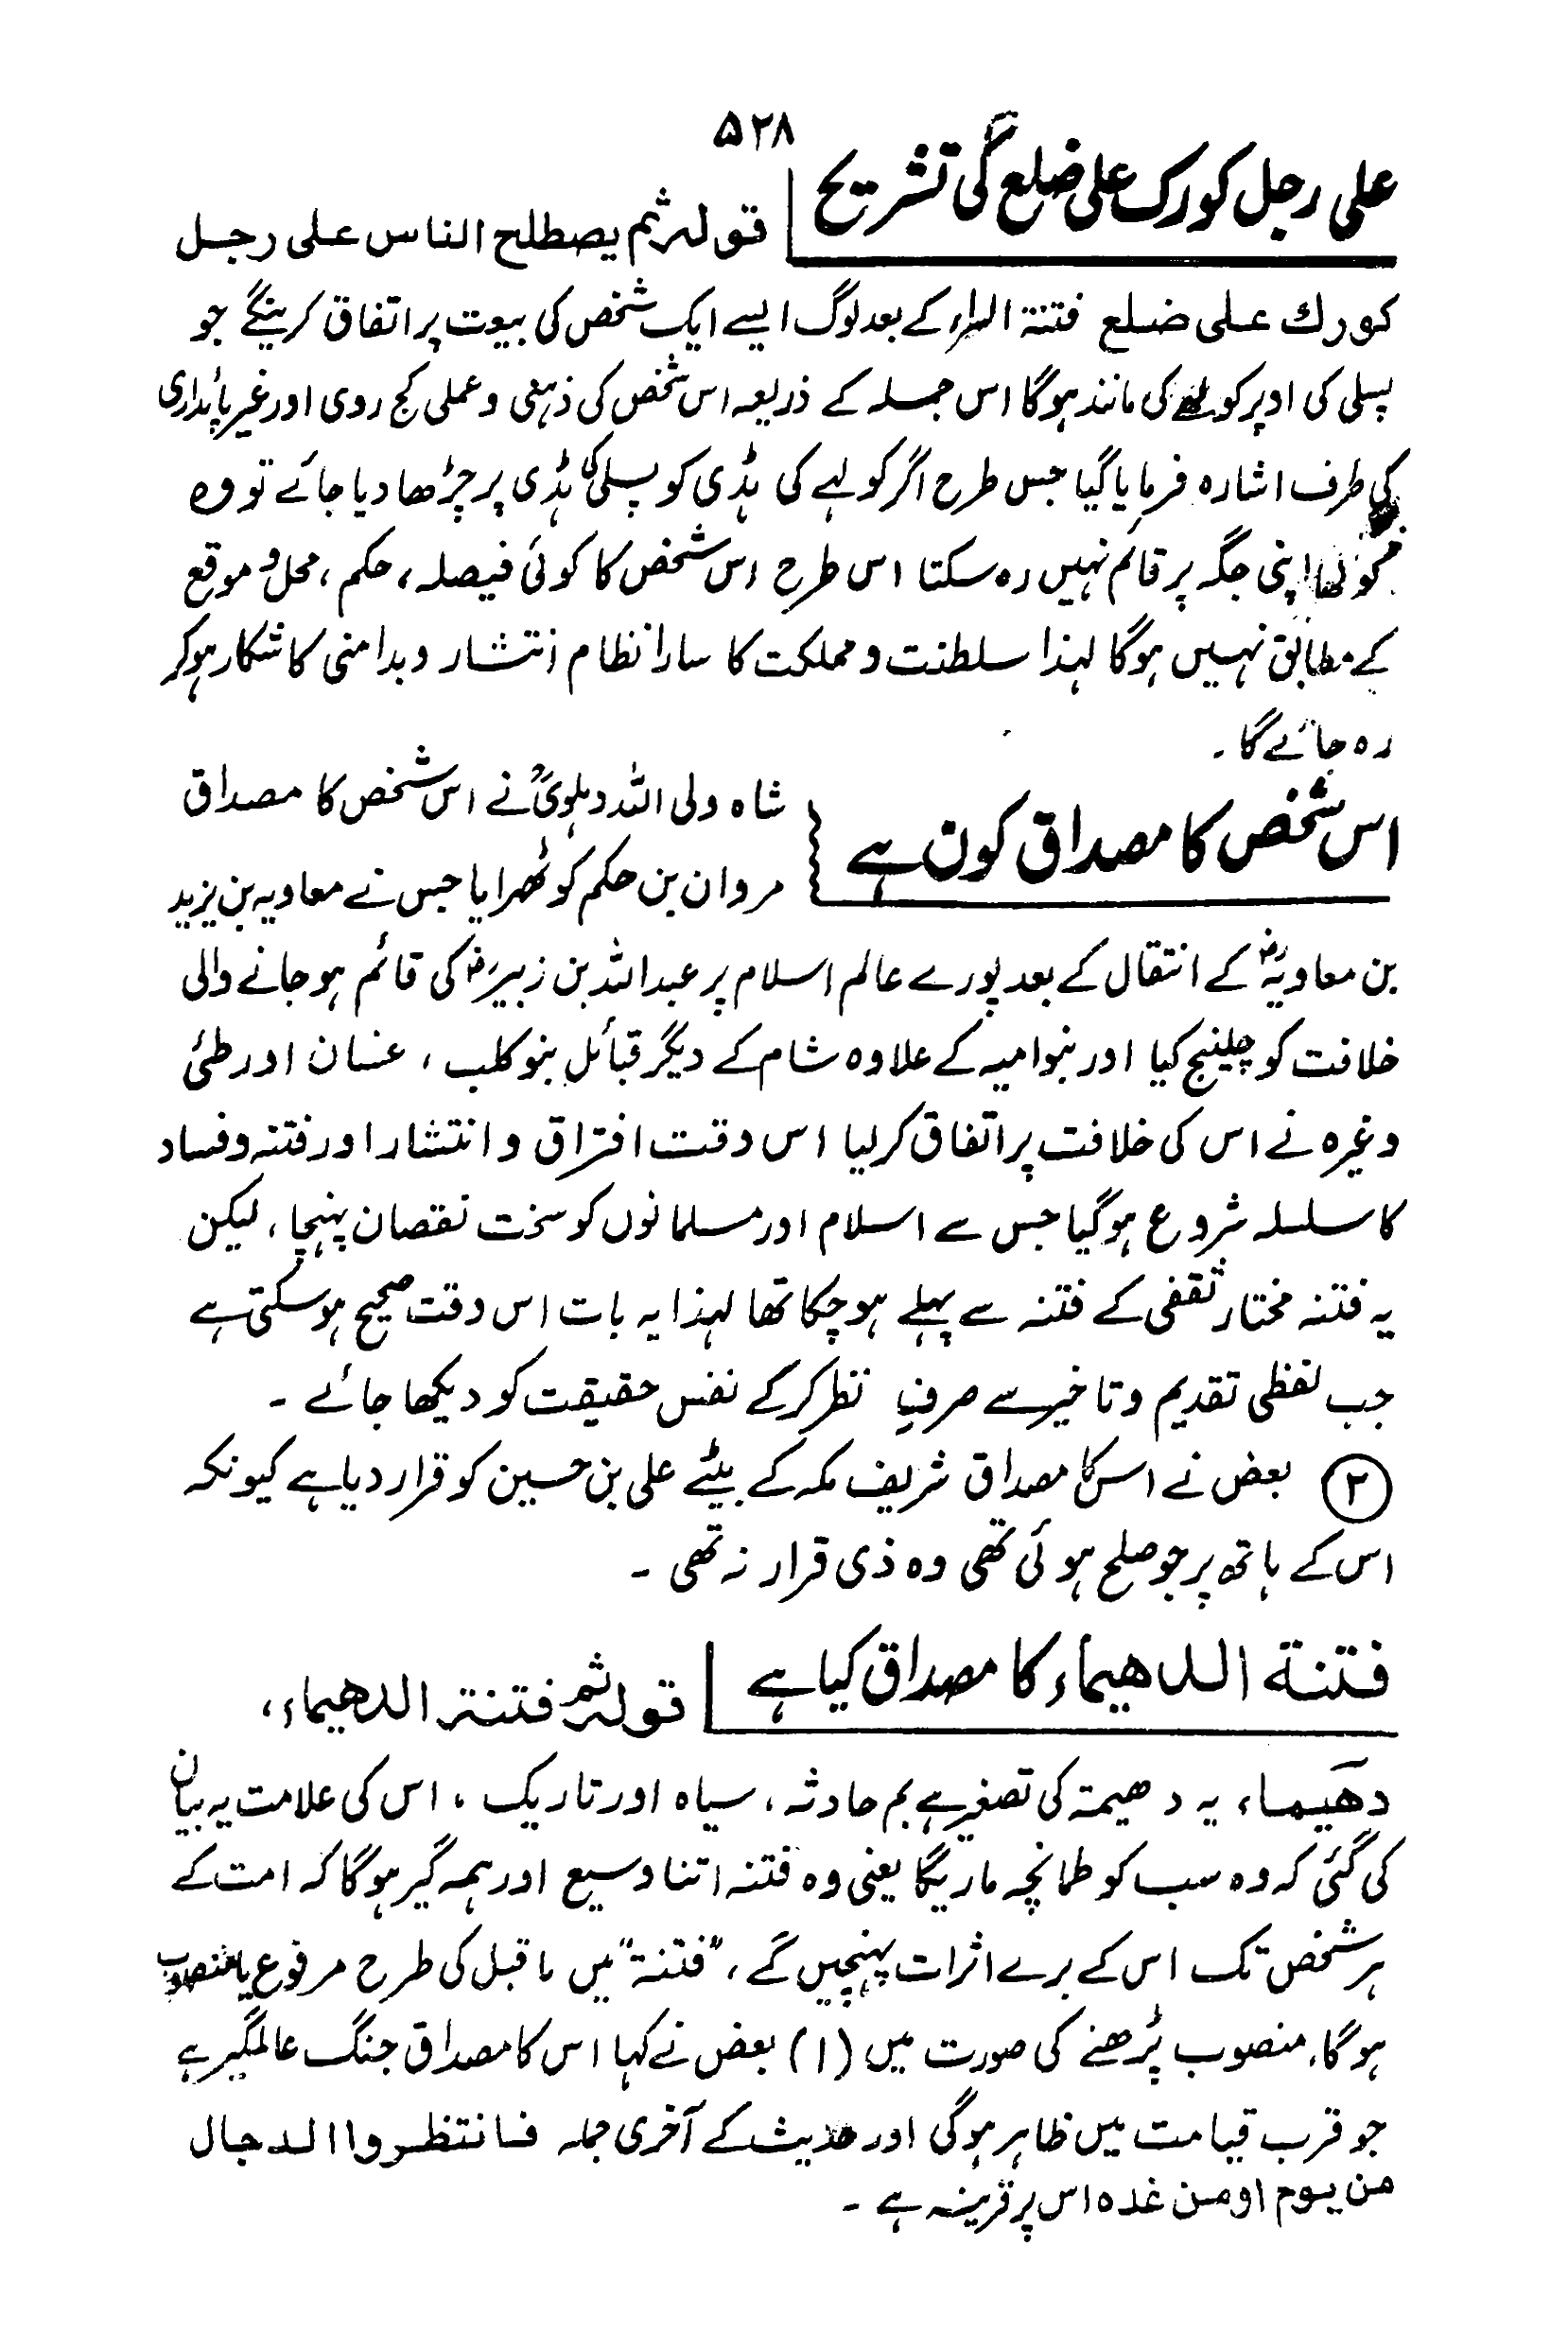 ۵۲۸
علی رجل کورک علی ضلع کی تشریح
قولہ ثم یصطلح الناس علی رجل
کورك علی ضلع فتنۃ السراء کے بعد لوگ ایسے ایک شخص کی بیعت پر اتفاق کرینگے جو
پسلی کی اوپر کولھے کی مانند ہوگا اس جملہ کے ذریعہ اس شخص کی ذہنی و عملی کج روی اور غیر پائداری
کی طرف اشارہ فرمایا گیا جس طرح اگر کولہے کی ہڈی کو پسلی کی ہڈی پر چڑھا دیا جائے تو وہ
کولھا اپنی جگہ پر قائم نہیں رہ سکتا اس طرح اس شخص کا کوئی فیصلہ، حکم، محل و موقع
کے مطابق نہیں ہوگا لہذا سلطنت و مملکت کا سارا نظام انتشار و بدامنی کا شکار ہوکر
رہ جائے گا۔
اس شخص کا مصداق کون ہے
شاہ ولی اللہ دہلویؒ نے اس شخص کا مصداق
مروان بن حکم کو ٹھرایا جس نے معاویہ بن یزید
بن معاویہؓ کے انتقال کے بعد پورے عالم اسلام پر عبداللہ بن زبیرؓ کی قائم ہوجانے والی
خلافت کو چیلنج کیا اور بنوامیہ کے علاوہ شام کے دیگر قبائل بنو کلب، غسان اور طئی
وغیرہ نے اس کی خلافت پر اتفاق کرلیا اس وقت افتراق و انتشار اور فتنہ و فساد
کا سلسلہ شروع ہوگیا جس سے اسلام اور مسلمانوں کو سخت نقصان پہنچا، لیکن
یہ فتنہ مختار ثقفی کے فتنہ سے پہلے ہوچکا تھا لہذا یہ بات اس وقت صحیح ہوسکتی ہے
جب لفظی تقدیم و تاخیر سے صرفِ نظر کرکے نفس حقیقت کو دیکھا جائے ۔
۲ بعض نے اس کا مصداق شریف مکہ کے بیٹے علی بن حسین کو قرار دیا ہے کیونکہ
اس کے ہاتھ پر جو صلح ہوئی تھی وہ ذی قرار نہ تھی ۔
فتنة الدھیماء کا مصداق کیا ہے
قولہ ثم فتنۃ الدھیماء،
دھَیماء یہ دھیمۃ کی تصغیر ہے بم حادثہ، سیاہ اور تاریک، اس کی علامت یہ بیان
کی گئی کہ وہ سب کو طمانچہ ماریگا یعنی وہ فتنہ اتنا وسیع اور ہمہ گیر ہوگا کہ امت کے
ہر شخص تک اس کے برے اثرات پہنچیں گے، "فتنة" میں ما قبل کی طرح مرفوع یا منصوب
ہوگا، منصوب پڑھنے کی صورت میں (۱) بعض نے کہا اس کا مصداق جنگ عالمگیر ہے
جو قرب قیامت میں ظاہر ہوگی اور حدیث کے آخری جملہ فانتظروا الدجال
من یوم او من غدہ اس پر قرینہ ہے ۔